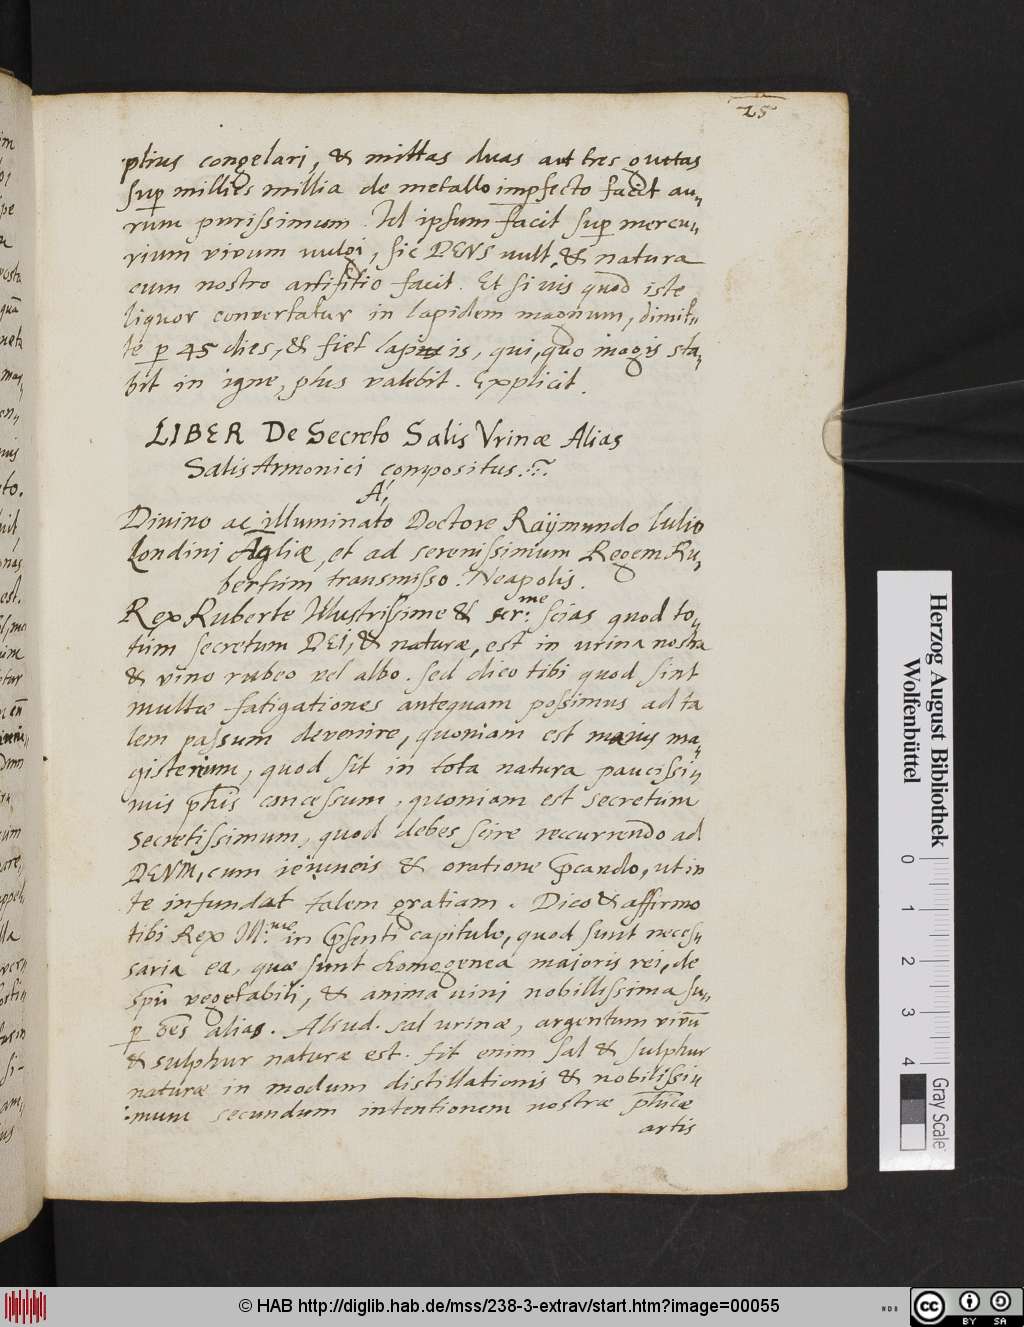 25
plius congelari, & mittas duas aut tres guttas
sup millies millia de metallo imperfecto facit au„
rum purissimum. Id ipsum facit sup mercu„
rium vivum vulgi, sic DENS vult, & natura
cum nostro artifitio facit. Et si vis quod iste
liquor convertatur in lapidem magnum, dimit„
te p 45 dies, & fiet lapis is, qui, quo magis sta„
bit in igne, plus valebit. Explicit.
LIBER De Secreto Salis Vrinæ Alias
Salis Armonici compositus.
A,
Divino ac illuminato Doctore Raÿmundo lulio
Londini Agliæ, et ad serenissimum Regem Ru„
bertum transmisso. Neapolis.
Rex Ruberte Illustrissime & ser:me scias quod to„
tum secretum DEI, & naturæ, est in urina nostra
& vino rubeo vel albo. sed dico tibi quod sint
multæ fatigationes antequam possimus ad ta
lem passum devenire, quoniam est maius ma„
gisterium, quod sit in tota natura paucissi„
mis phis concessum, quoniam est secretum
secretissimum, quod debes scire reccurrendo ad
DEVM, cum ieiuneis & oratione pcando, ut in
te infundat talem gratiam. Dico & affirmo
tibi Rex Ill:me in psenti capitulo, quod sunt neces„
saria ea, quæ sunt homogenea maioris rei, de
spū vegetabili, & anima vini nobillissima su„
p oēs alias. Aliud. sal urinæ, argentum vivū
& sulphur naturæ est. fit enim sal & sulphur
naturæ in modum distillationis & nobilissi„
mum secundum intentionem nostræ phicæ
artis
Herzog August Bibliothek
Wolfenbüttel
0 1 2 3 4
Gray Scale
© HAB http://diglib.hab.de/mss/238-3-extrav/start.htm?image=00055
NDB
cc BY SA